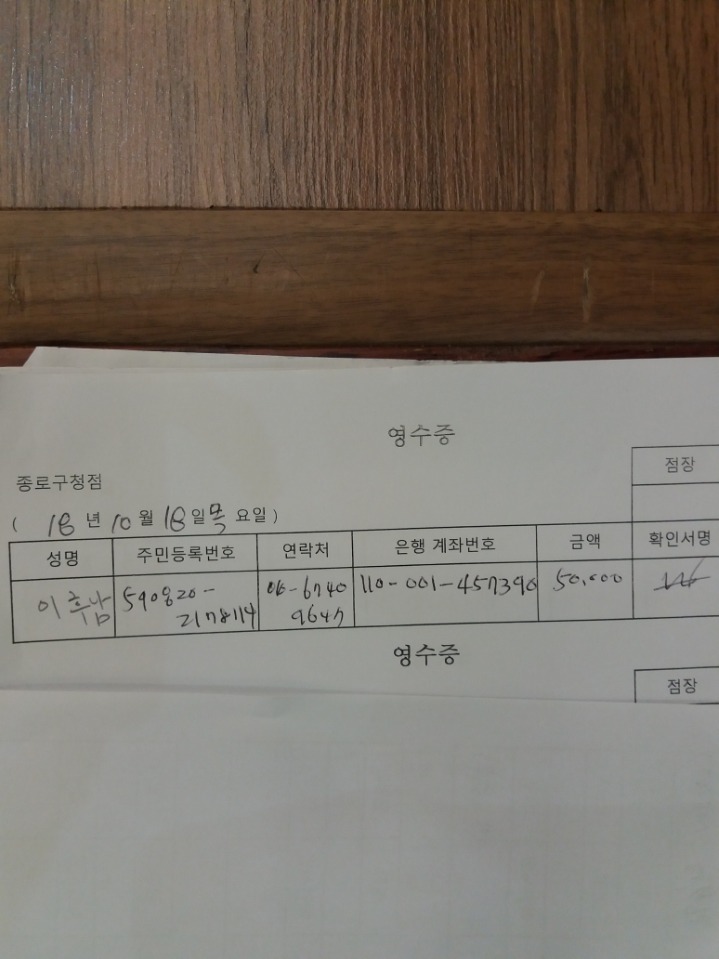 영수증
점장
종로구청점
( 18 년 10 월 18 일 목 요일 )
성명 주민등록번호 연락처 은행 계좌번호 금액 확인서명
이후남 590820- 010-6740 110-001-457390 50,000
2178114 9647
영수증
점장